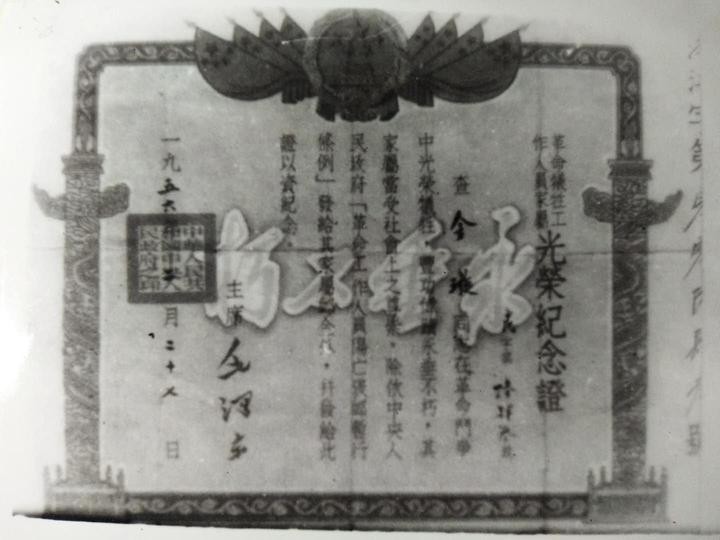 革命犧牲工
作人員家屬
光榮紀念證
查 金 同志在革命鬥爭
中光榮犧牲，豐功偉績永垂不朽，其
家屬當受社會上之尊崇。除依中央人
民政府「革命工作人員傷亡褒卹暫行
條例」發給其家屬卹金外，幷發給此
證以資紀念。
永垂不朽
主席 毛澤东
一九五六年 月二十七日
中華人民共
和國中央人
民政府之印